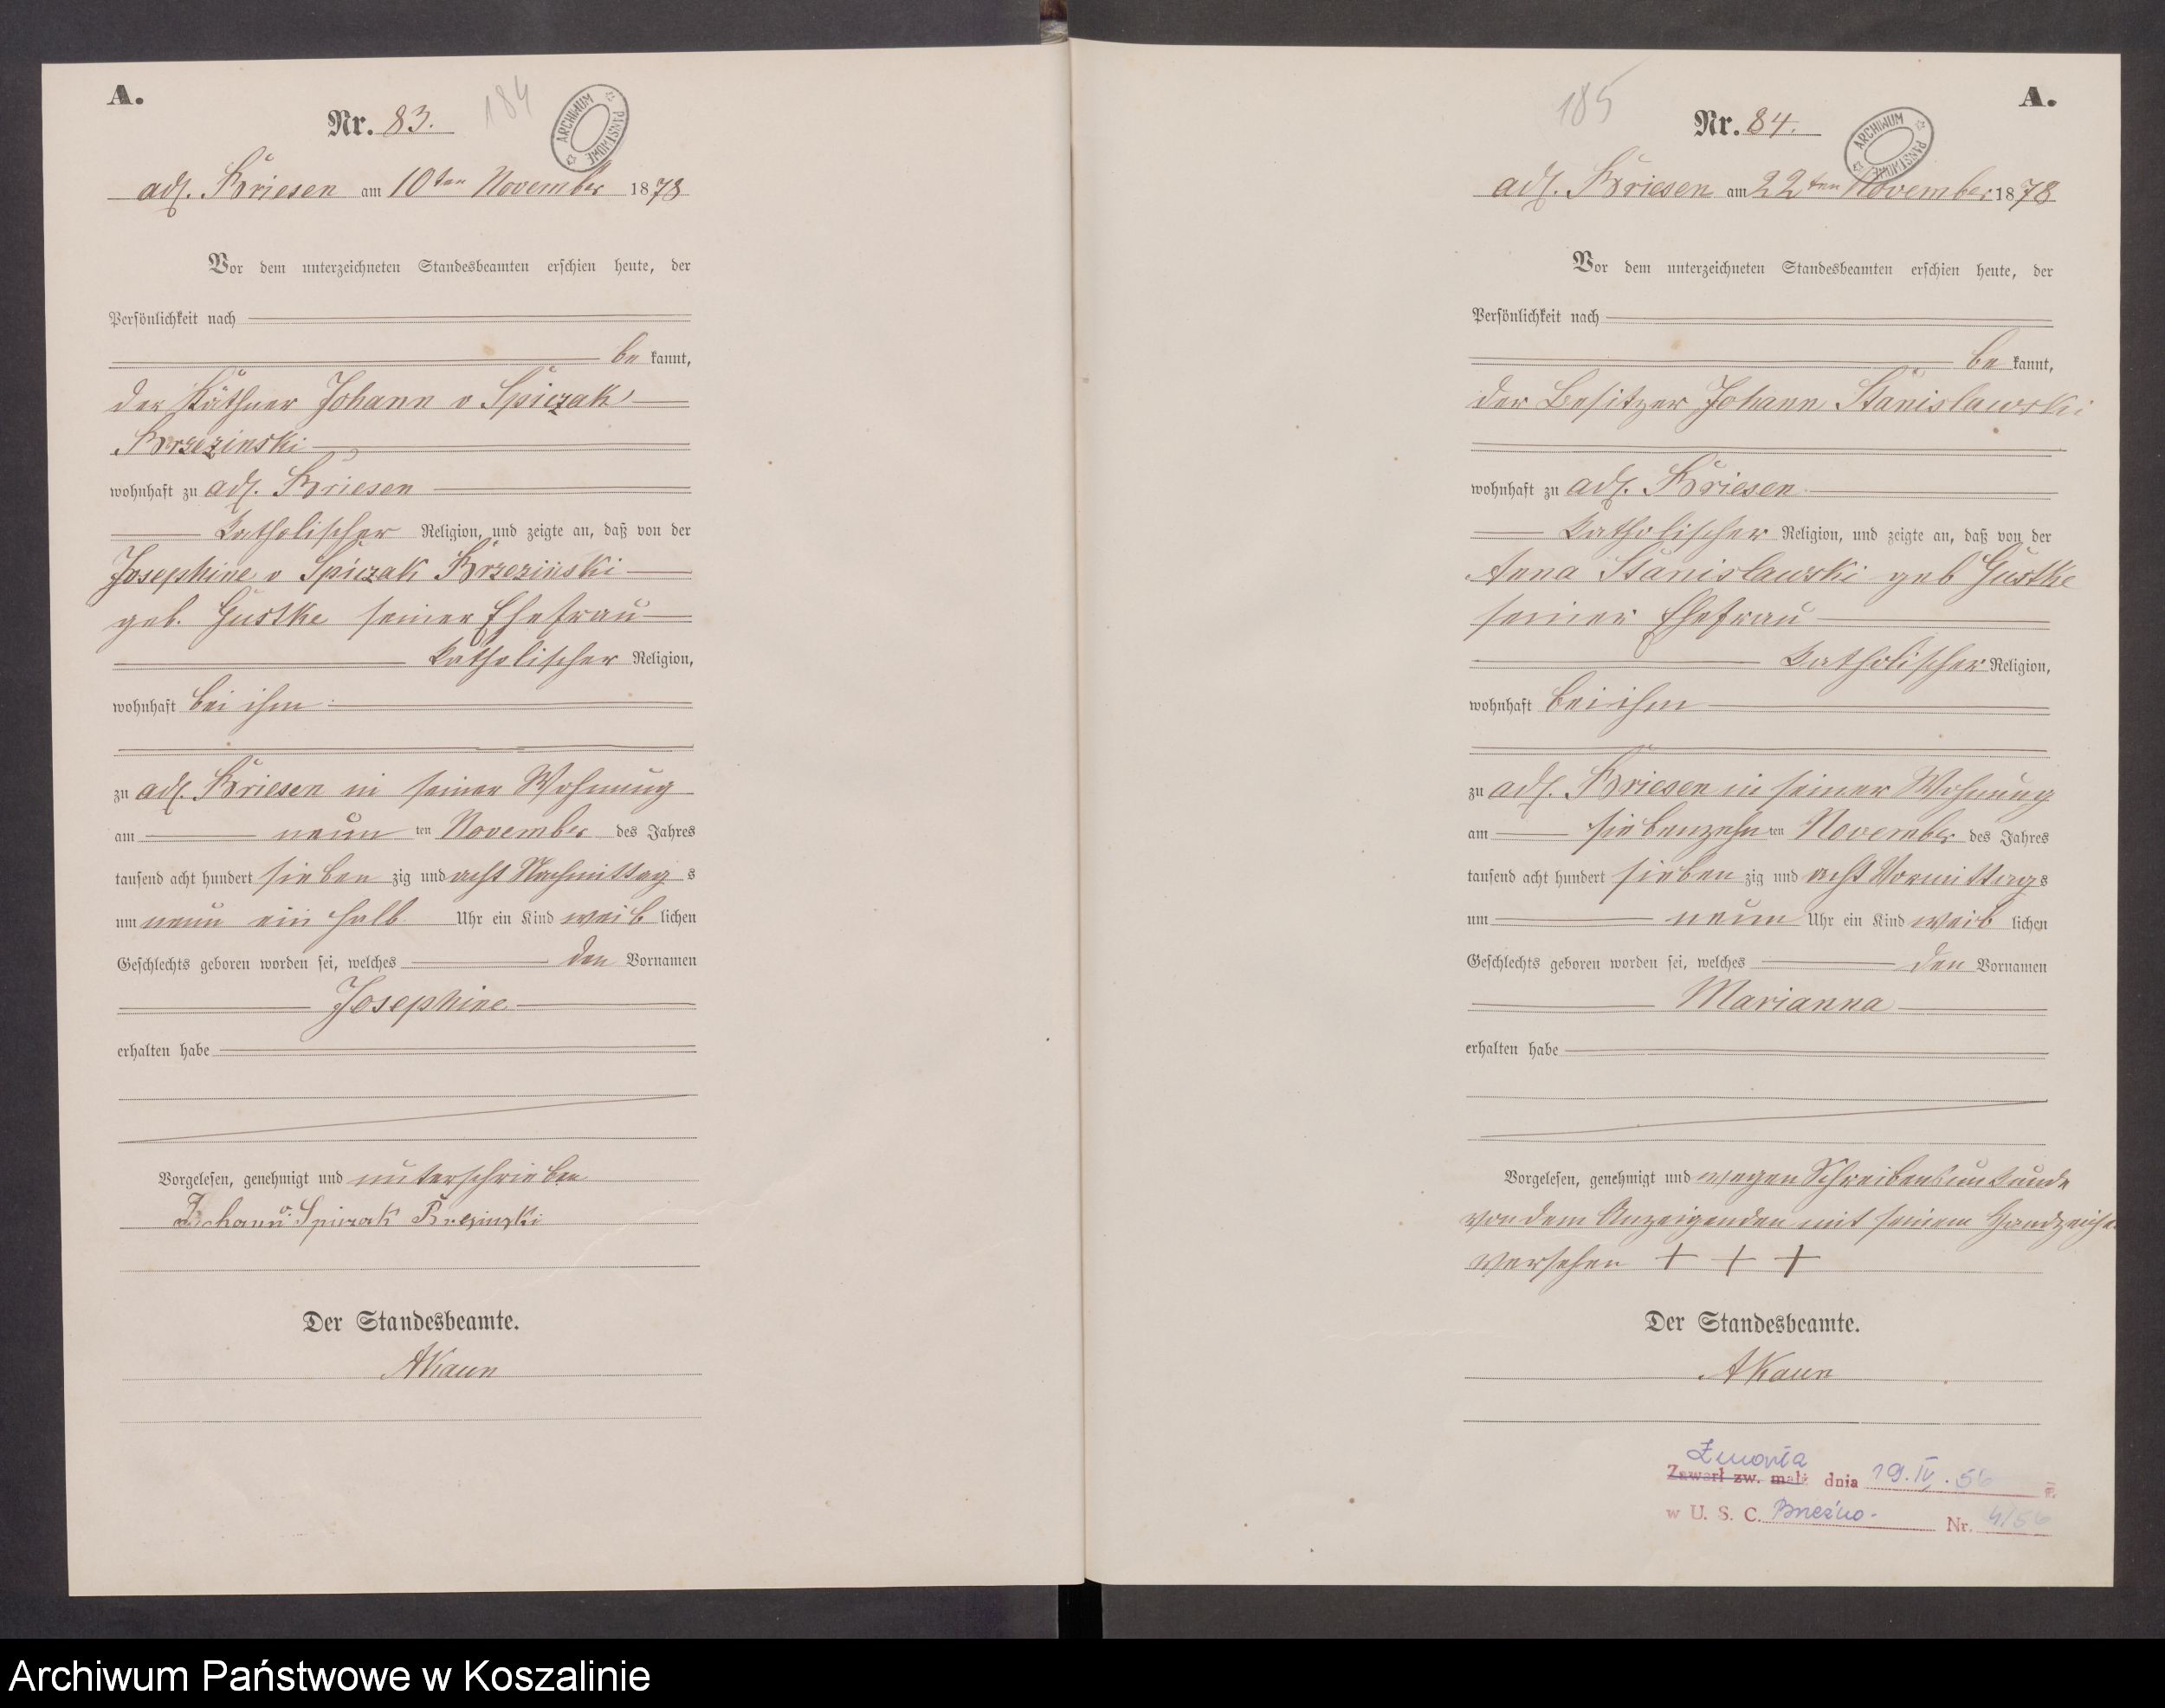 A.
184
Nr. 83.
ARCHIWUM PAŃSTWOWE
adl. Briesen am 10ten November 1878
Vor dem unterzeichneten Standesbeamten erschien heute, der
Persönlichkeit nach
be kannt,
der Käthner Johann v Spiczak
Brzezinski
wohnhaft zu adl. Briesen
katholischer Religion, und zeigte an, daß von der
Josephine v Spiczak Brzezinski
geb. Gustke seiner Ehefrau
katholischer Religion,
wohnhaft bei ihm
zu adl. Briesen in seiner Wohnung
am neun ten November des Jahres
tausend acht hundert sieben zig und acht Nachmittag s
um neun ein halb Uhr ein Kind weib lichen
Geschlechts geboren worden sei, welches den Vornamen
Josephine
erhalten habe
Vorgelesen, genehmigt und unterschrieben
Johann v. Spiczak Brezinski
Der Standesbeamte.
AKaun
185
A.
Nr. 84.
ARCHIWUM PAŃSTWOWE
adl. Briesen am 22ten November 1878
Vor dem unterzeichneten Standesbeamten erschien heute, der
Persönlichkeit nach
be kannt,
der Besitzer Johann Stanislawski
wohnhaft zu adl. Briesen
katholischer Religion, und zeigte an, daß von der
Anna Stanislawski geb Gustke
seiner Ehefrau
katholischer Religion,
wohnhaft bei ihm
zu adl. Briesen in seiner Wohnung
am siebenzehn ten November des Jahres
tausend acht hundert sieben zig und acht Vormittag s
um neun Uhr ein Kind weib lichen
Geschlechts geboren worden sei, welches den Vornamen
Marianna
erhalten habe
Vorgelesen, genehmigt und wegen Schreibensunkunde
von dem Anzeigenden mit seinem Handzeichen
versehen + + +
Der Standesbeamte.
AKaun
Zmarła
Zawarł zw. małż dnia 19.IV.56 r.
w U. S. C. Brzeźno Nr. 4/56
Archiwum Państwowe w Koszalinie